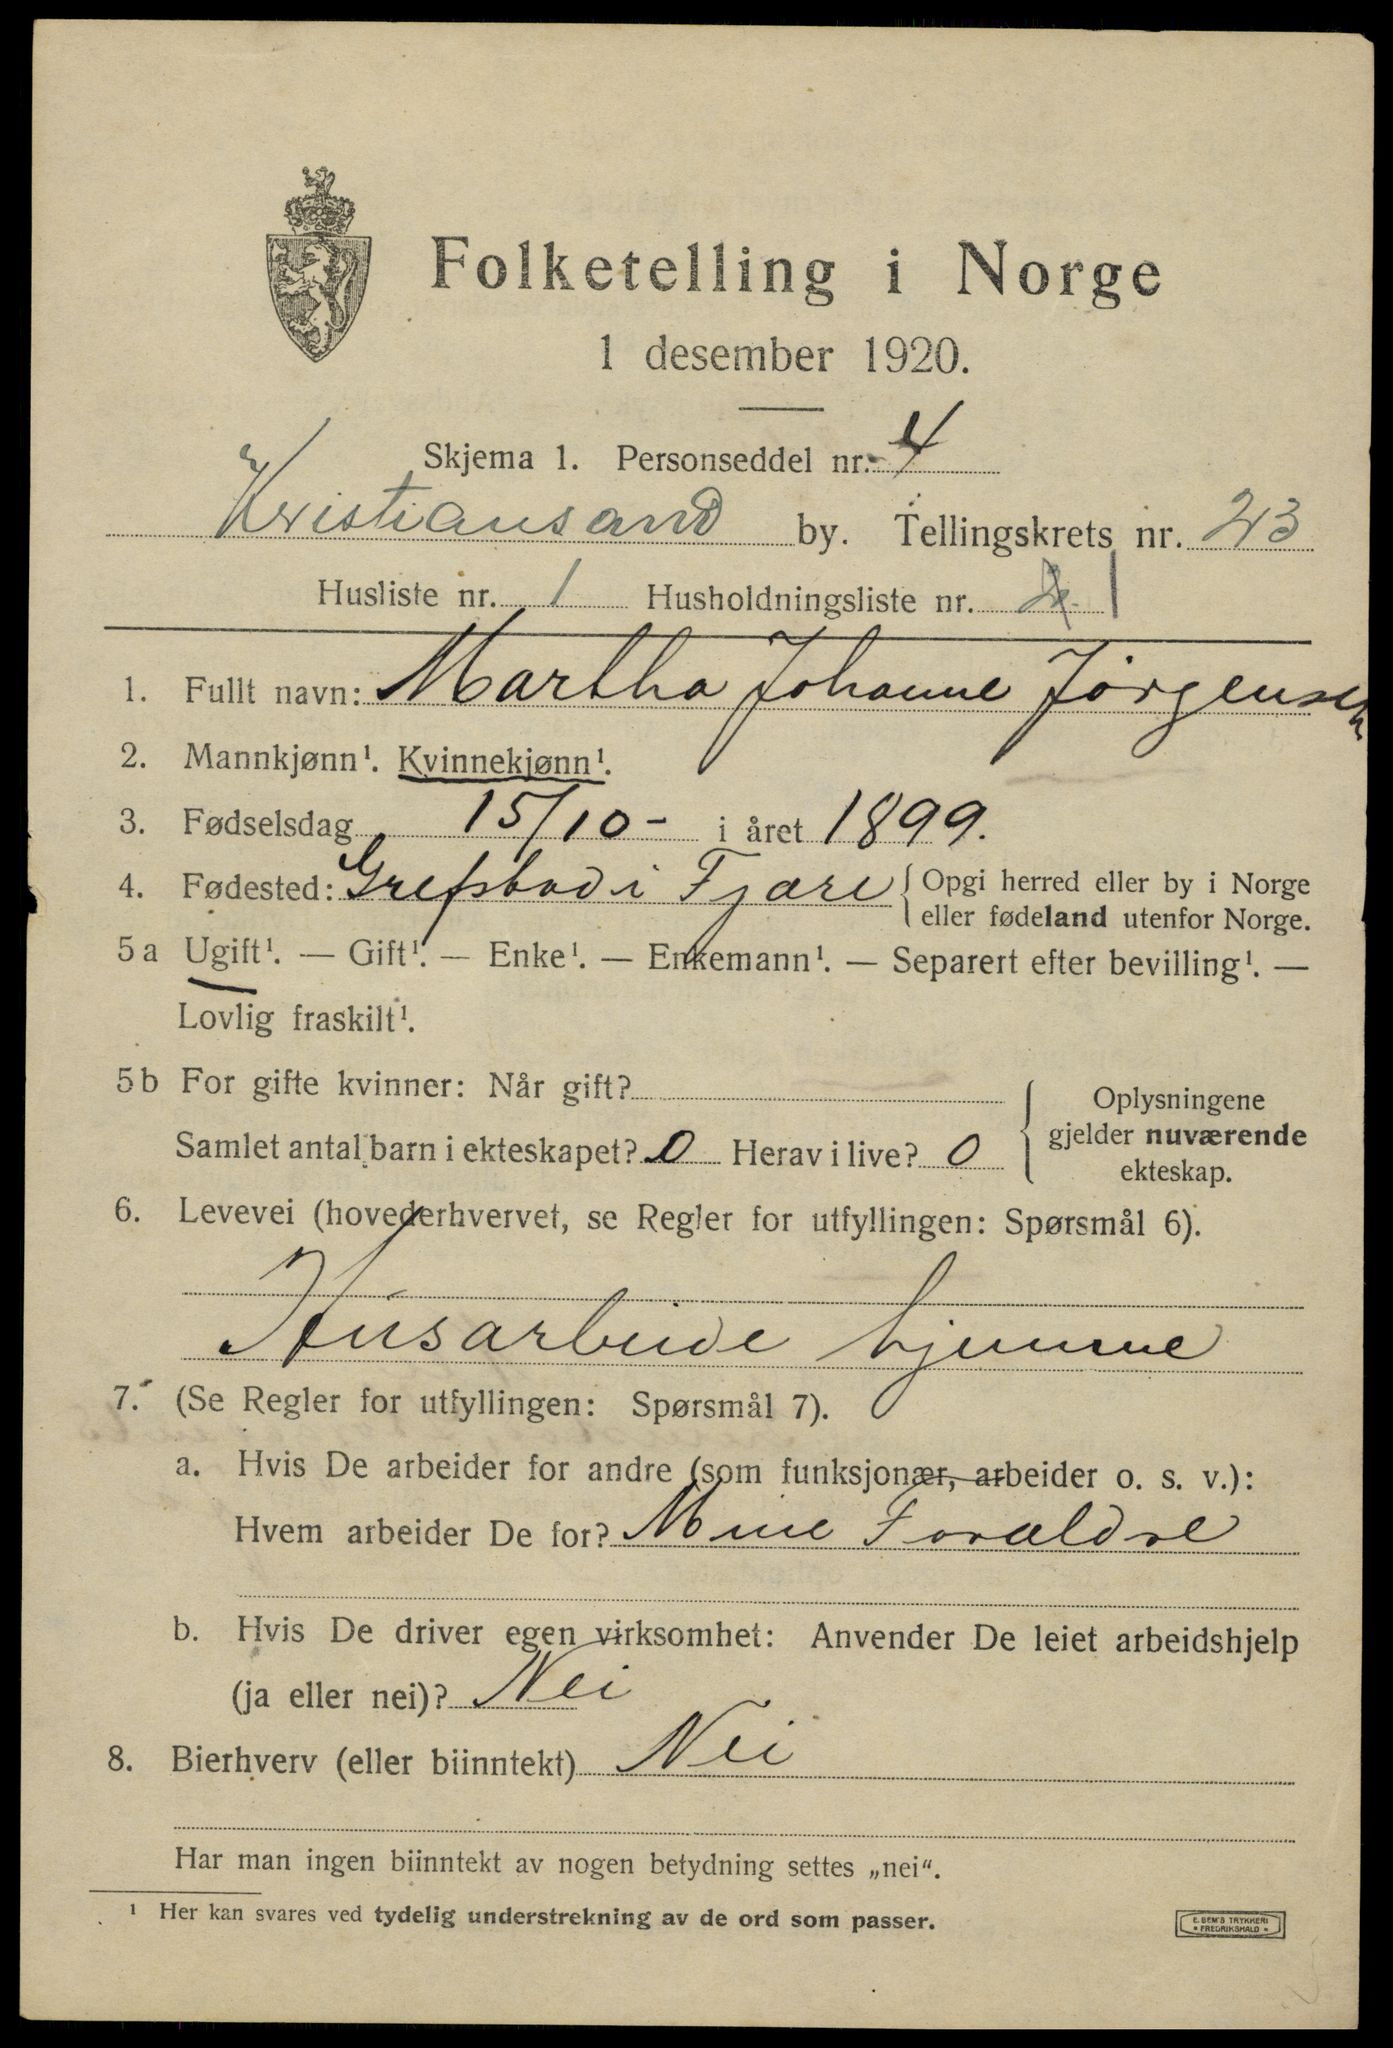 Folketelling i Norge
1 desember 1920.
Skjema 1. Personseddel nr. 4
Kristiansand by. Tellingskrets nr. 23
Husliste nr. 1 Husholdningsliste nr. 1
1. Fullt navn: Martha Johanne Jörgensen
2. Mannkjønn¹. Kvinnekjønn¹.
3. Fødselsdag 15/10- i året 1899.
4. Fødested: Grefstad i Fjære { Opgi herred eller by i Norge
eller fødeland utenfor Norge.
5a Ugift¹. — Gift¹. — Enke¹. — Enkemann¹. — Separert efter bevilling¹. —
Lovlig fraskilt¹.
5b For gifte kvinner: Når gift?
Samlet antal barn i ekteskapet? 0 Herav i live? 0
Oplysningene
gjelder nuværende
ekteskap.
6. Levevei (hovederhvervet, se Regler for utfyllingen: Spørsmål 6).
Husarbeide hjemme
7. (Se Regler for utfyllingen: Spørsmål 7).
a. Hvis De arbeider for andre (som funksjonær, arbeider o. s. v.):
Hvem arbeider De for? Mine Forældre
b. Hvis De driver egen virksomhet: Anvender De leiet arbeidshjelp
(ja eller nei)? Nei
8. Bierhverv (eller biinntekt) Nei
Har man ingen biinntekt av nogen betydning settes „nei“.
¹ Her kan svares ved tydelig understrekning av de ord som passer.
E. SEM'S TRYKKERI
* FREDRIKSHALD *